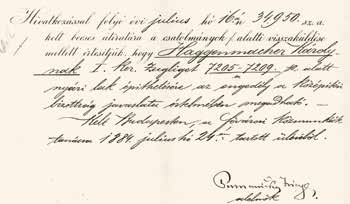 Hivatkozással folyó évi julius hó 16-án 34950. sz. a.
kelt becses átiratára a csatolmányok ·/· alatti visszaküldése
mellett értesitjük, hogy Haggenmacher Károly-
nak I. ker. Zugliget 7205-7209. sz. alatt
nyári lak épithetésére az engedély a középitési
bizottság javaslata értelmében megadható.
Kelt Budapesten, a fővárosi Közmunkák
tanácsa 1884. julius hó 24-én tartott üléséből.
alelnök.